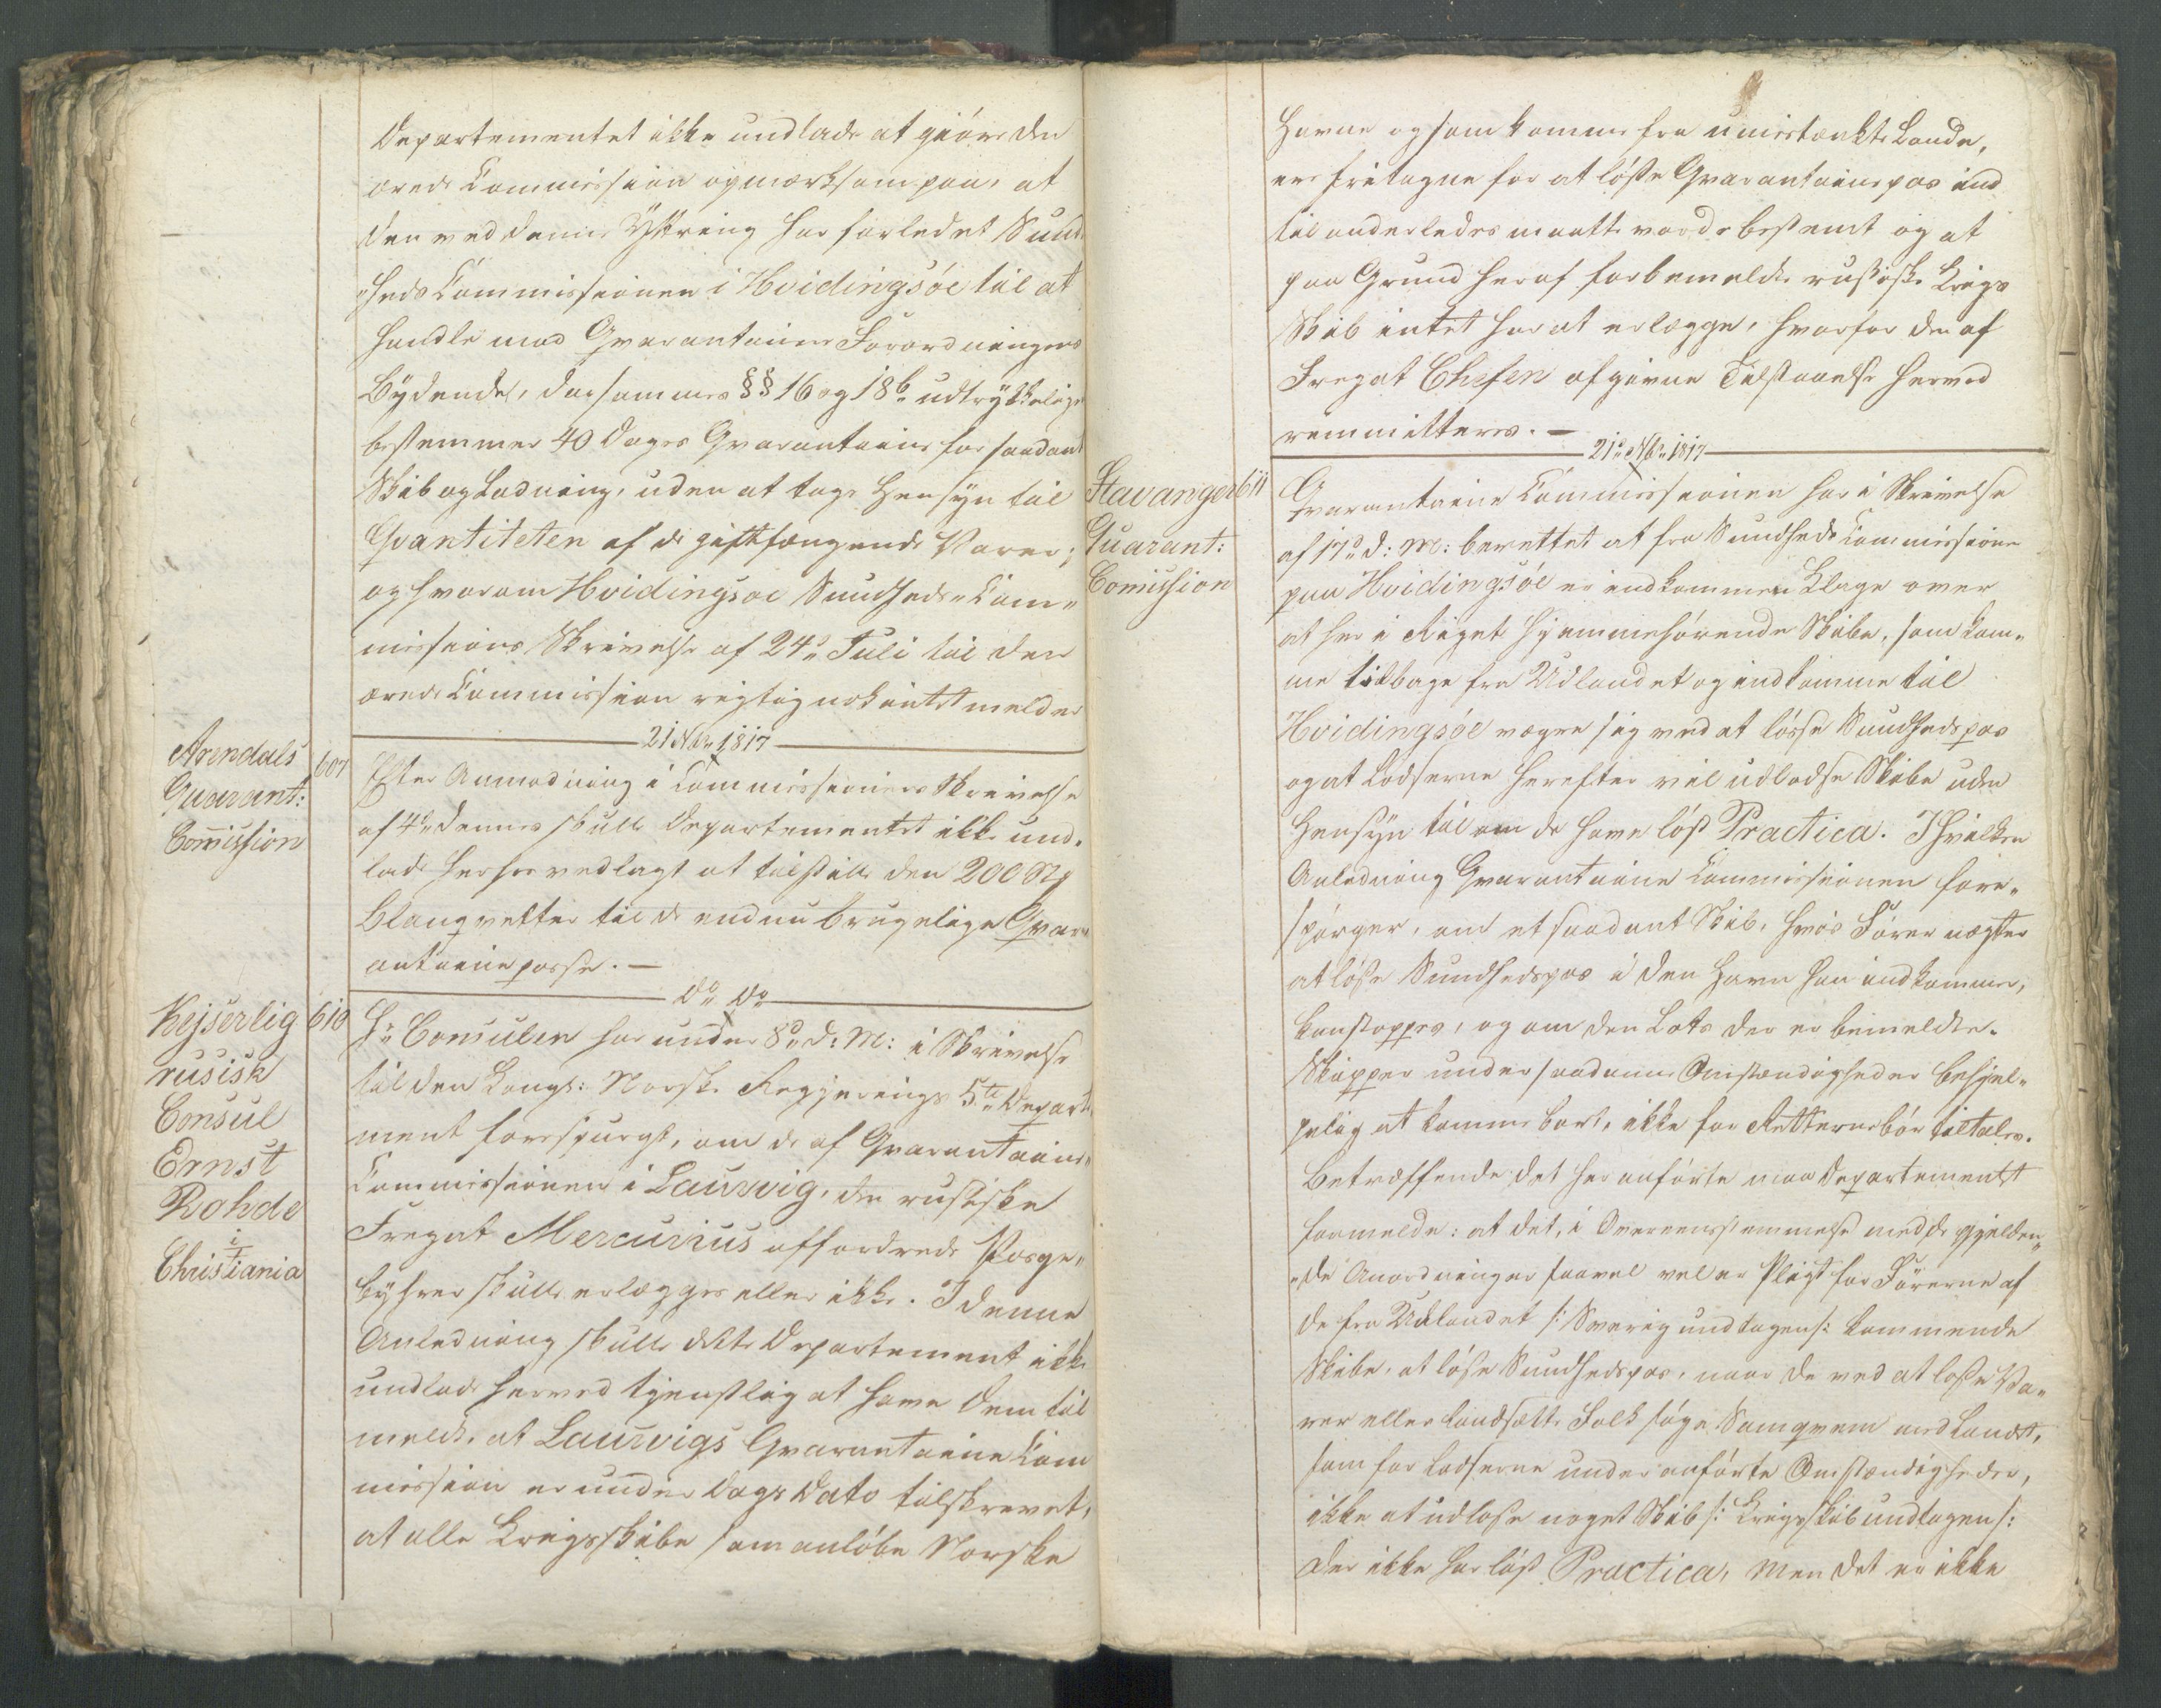 Departementet ikke undlade at giöre den
ærede Commission opmærksom paa, at
den ved denne Yttring har forledet Sund-
"heds Commissionen i Hvidingsöe til at
handle mod Qvarantaine Forordningens
Bydende, da sammes §§ 16 og 18 b. udtrykkelige
bestemmer 40 Dages Qvarantaine for saadant
Skib og Ladning, uden at tage Hensyn til
Qvantiteten af de giftfængende Varer;
og hvorom Hvidingsoe Sundheds-Com"
missions Skrivelse af 24de Juli til den
ærede Commission rigtig nok intet melder
21 Nbr 1817
Arendals
Quarant:
Comission
607
Efter Anmodning i Commissionens Skrivelse
af 4de dennes skulle Departementet ikke und-
lade herhos vedlagt at tilstille den 200 Stk
Blanqvetter til de endnu brugelige Qvar-
antainepasse. —
Do Do
Kejserlig
rusisk
Consul
Ernst
Rohde
i
Christiania
610
Hr Consulen har under 8de d: M: i Skrivelse
til den Kongl: Norske Regjerings 5te Departe
ment forespurgt, om de af Qvarantaine-
Commissionen i Laurvig, den russiske
Fregat Mercurius affordrede Pasge"
byhrer skulle erlægges eller ikke. I denne
Anledning skulle dette Departement ikke
undlade herved tjenstlig at have Dem til
meldt, at Laurvigs Qvarantaine Com
mission er under Dags Dato tilskrevet,
at alle Krigsskibe som anlöbe Norske
Havne og som komme fra umistænkte Lande,
ere fritagne for at löse Qvarantainepas ind
til anderledes maatte vorde bestemt og at
paa Grund heraf forbemeldte russiske Krigs
Skib intet har at erlægge, hvorfor den af
Fregat Chefen afgivne Tilstaaelse herved
remmitteres. —
21de Nbr 1817
Stavanger
Quarant:
Comission
611
Qvarantaine Commissionen har i Skrivelse
af 17de d: M: berettet at fra Sundheds Commissionen
paa Hvidingsöe er indkommen Klage over
at her i Riget hjemmehörende Skibe, som kom"
me tilbage fra Udlandet og indkomme til
Hvidingsöe vægre sig ved at lösse Sundhedspas
og at Lodserne herefter vil udlodse Skibe uden
Hensyn til om de have löst Practica. I hvilken
Anledning Qvarantaine Commissionen fore"
spörger, om et saadant Skib, hvis Förer nægter
at löse Sundhedspas i den Havn han indkommer,
kan stoppes, og om den Lots der er bemeldte
Skipper under saadanne Omstændigheder behjel"
pelig at komme bort, ikke for Retterne bör tiltales.
Betræffende det her anförte maa Departementet
formelde: at det, i Overensstemmelse med de gjelden"
"de Anordninger saavel vel er Pligt for Förerne af
de fra Udlandet /: Sverig undtagen :/ kommende
Skibe, at löse Sundhedspas, naar de ved at losse Va"
rer eller landsætte Folk söge Samqvem med Landet,
som for Lodserne under anförte Omstændigheder,
ikke at udlose noget Skib /: Krigsskib undtagen :/
der ikke har löst Practica, men det er ikke